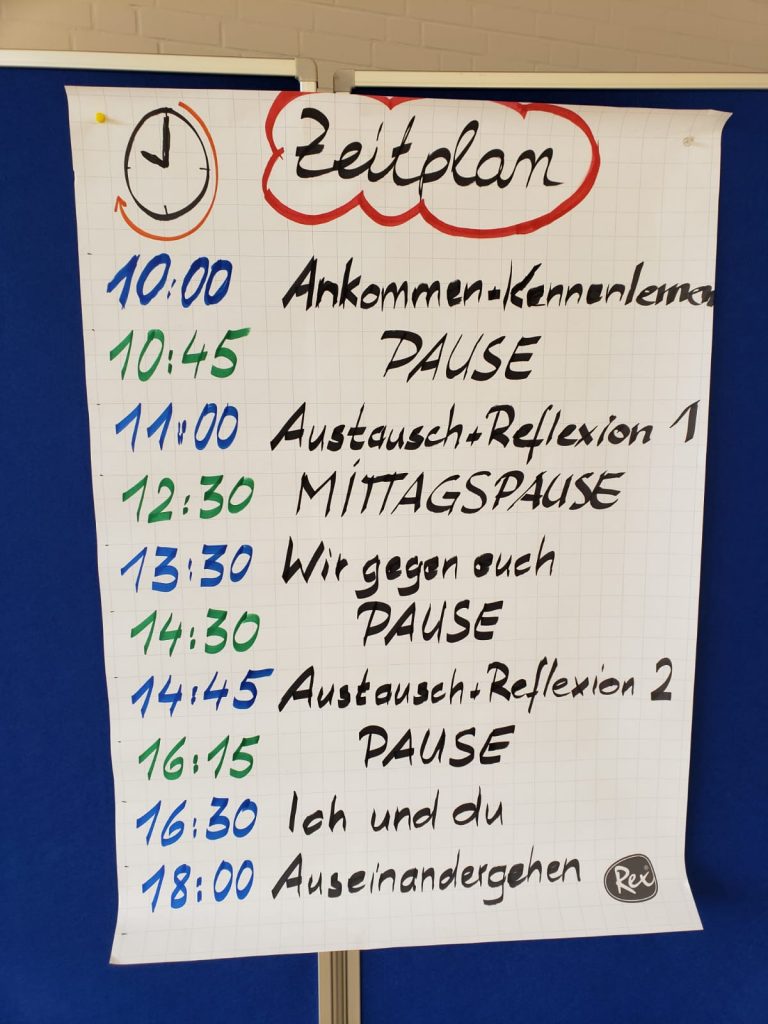 Zeitplan
10:00 Ankommen + Kennenlernen
10:45 PAUSE
11:00 Austausch + Reflexion 1
12:30 MITTAGSPAUSE
13:30 Wir gegen euch
14:30 PAUSE
14:45 Austausch + Reflexion 2
16:15 PAUSE
16:30 Ich und du
18:00 Auseinandergehen
Rex